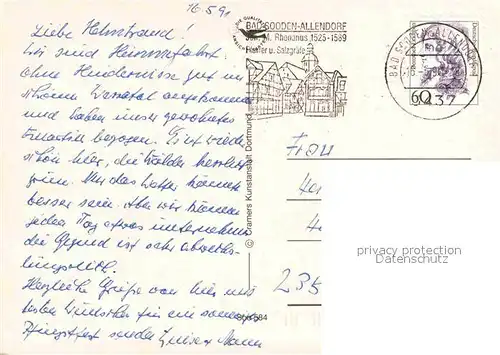 16.5.91
Liebe Helmtraud!
Wir sind Himmelfahrt
ohne Hindernisse gut im
schönen Werratal angekommen
und haben unser gewohntes
Quartier bezogen. Es ist wieder
schön hier, die Wälder herrlich
grün. Nur das Wetter könnte
besser sein. Aber wir können
jeden Tag etwas unternehmen
die Gegend ist sehr abwechs-
lungsreich.
Herzliche Grüße von hier und
besten Wünsche für ein sonniges
Pfingstfest senden
BAD SOODEN-ALLENDORF
Joh. M. Rhenanus 1525-1589
Pfarrer u. Salzgräfe
BAD SOODEN-ALLENDORF
60
437
© Cramers Kunstanstalt Dortmund
Frau
235
privacy protection
DATENSCHUTZ